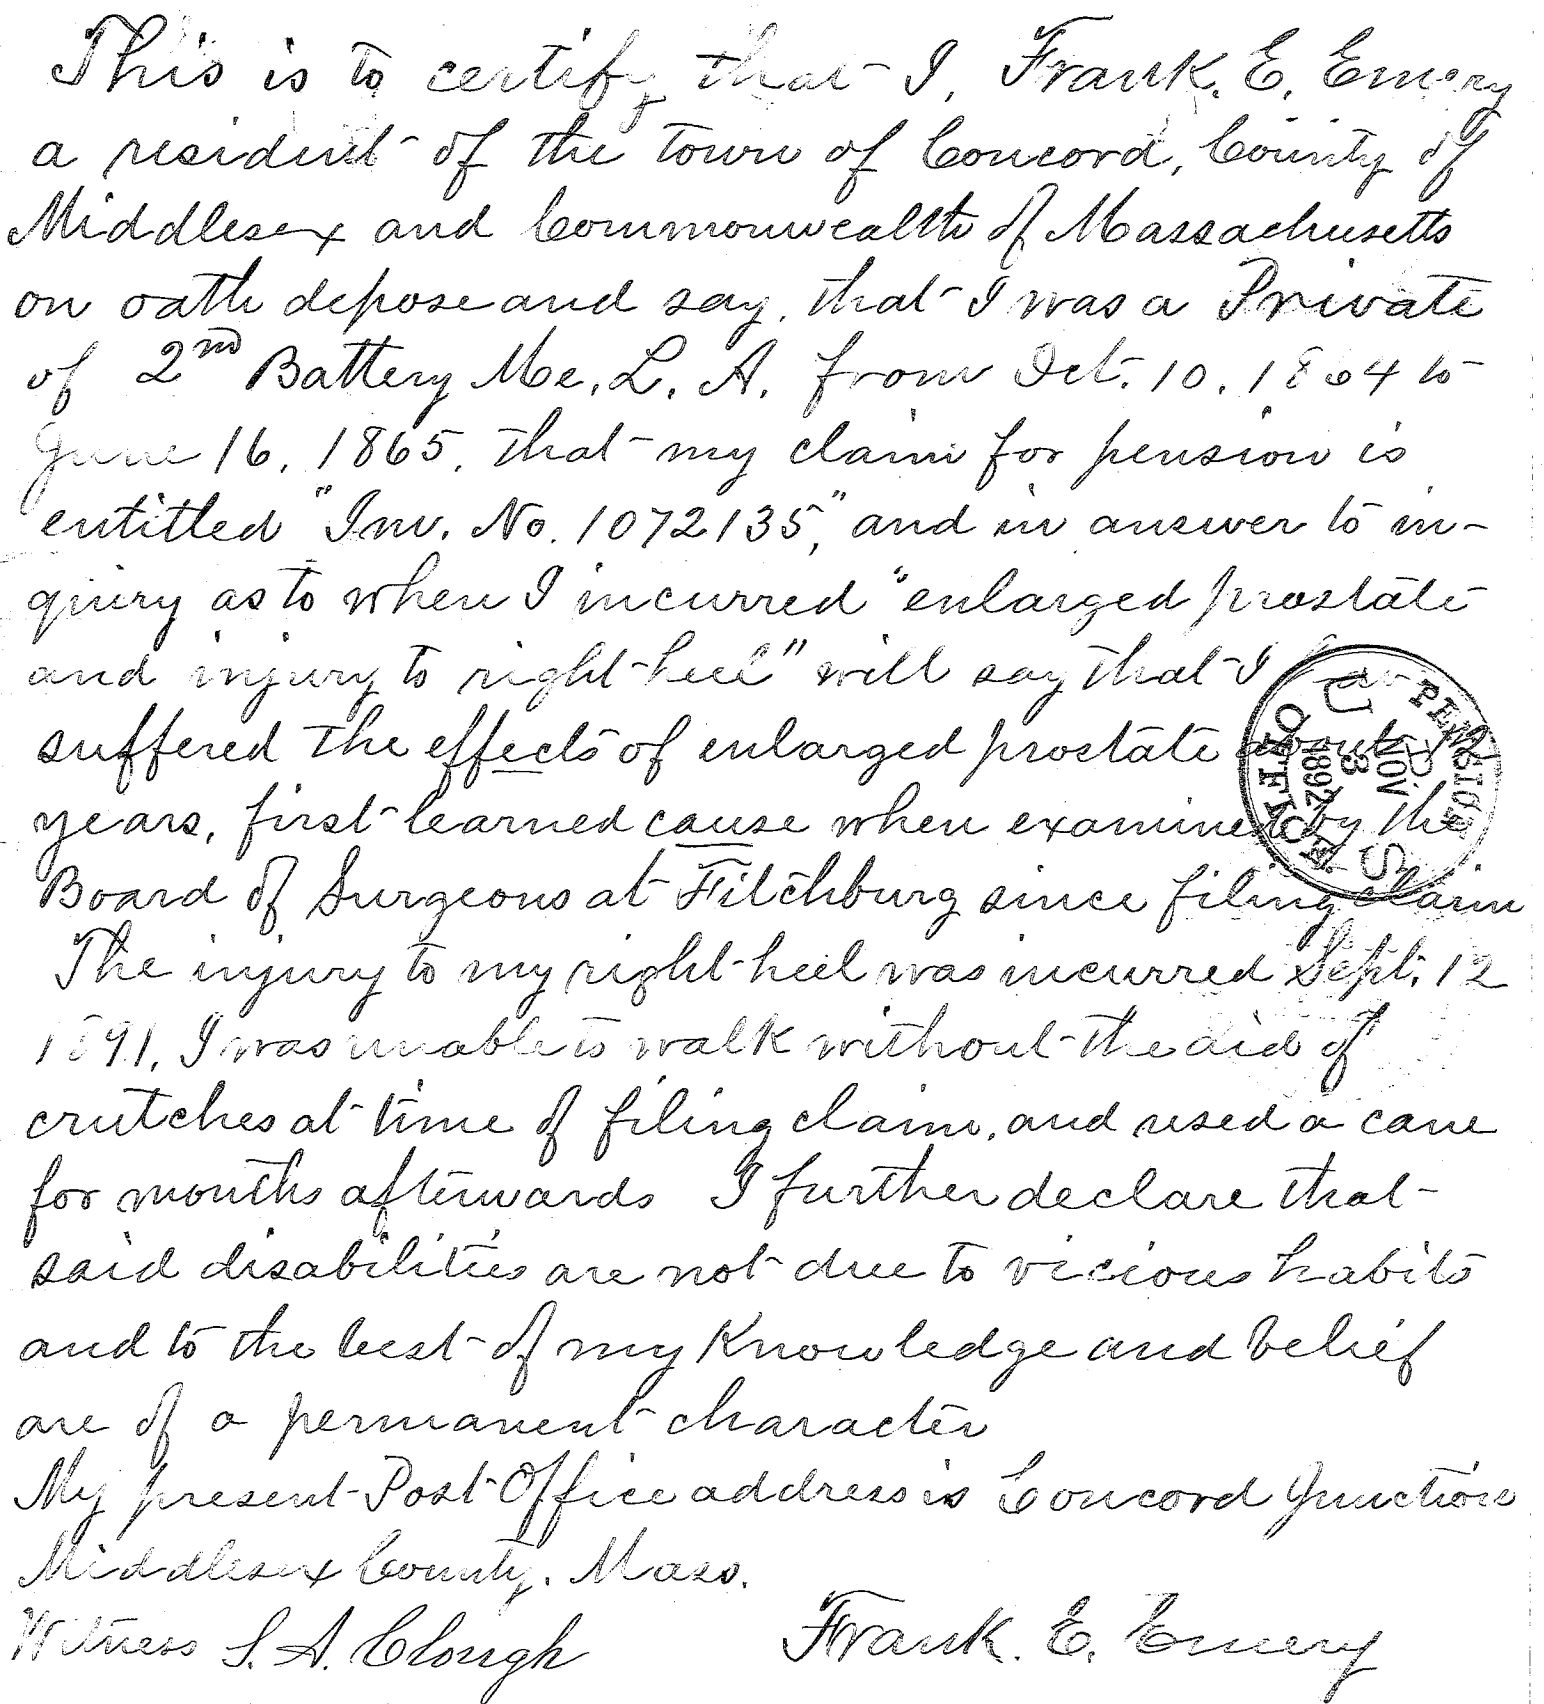 This is to certify that I, Frank. E. Emery
a resident of the town of Concord, County of
Middlesex and Commonwealth of Massachusetts
on oath depose and say, that I was a Private
of 2nd Battery Me. L. A. from Oct. 10. 1864 to
June 16. 1865. that my claim for pension is
entitled "Inv. No. 1072135," and in answer to in-
quiry as to when I incurred "enlarged prostate
and injury to right heel" will say that I have
suffered the effects of enlarged prostate about
years, first learned cause when examined by the
Board of Surgeons at Fitchburg since filing claim
The injury to my right heel was incurred Sept. 12
1891. I was unable to walk without the aid of
crutches at time of filing claim, and used a cane
for months afterwards I further declare that
said disabilities are not due to vicious habits
and to the best of my knowledge and belief
are of a permanent character
My present Post Office address is Concord Junction
Middlesex County. Mass.
Witness S. A. Clough Frank. E. Emery
U. S. PENSION OFFICE
NOV 3 1892